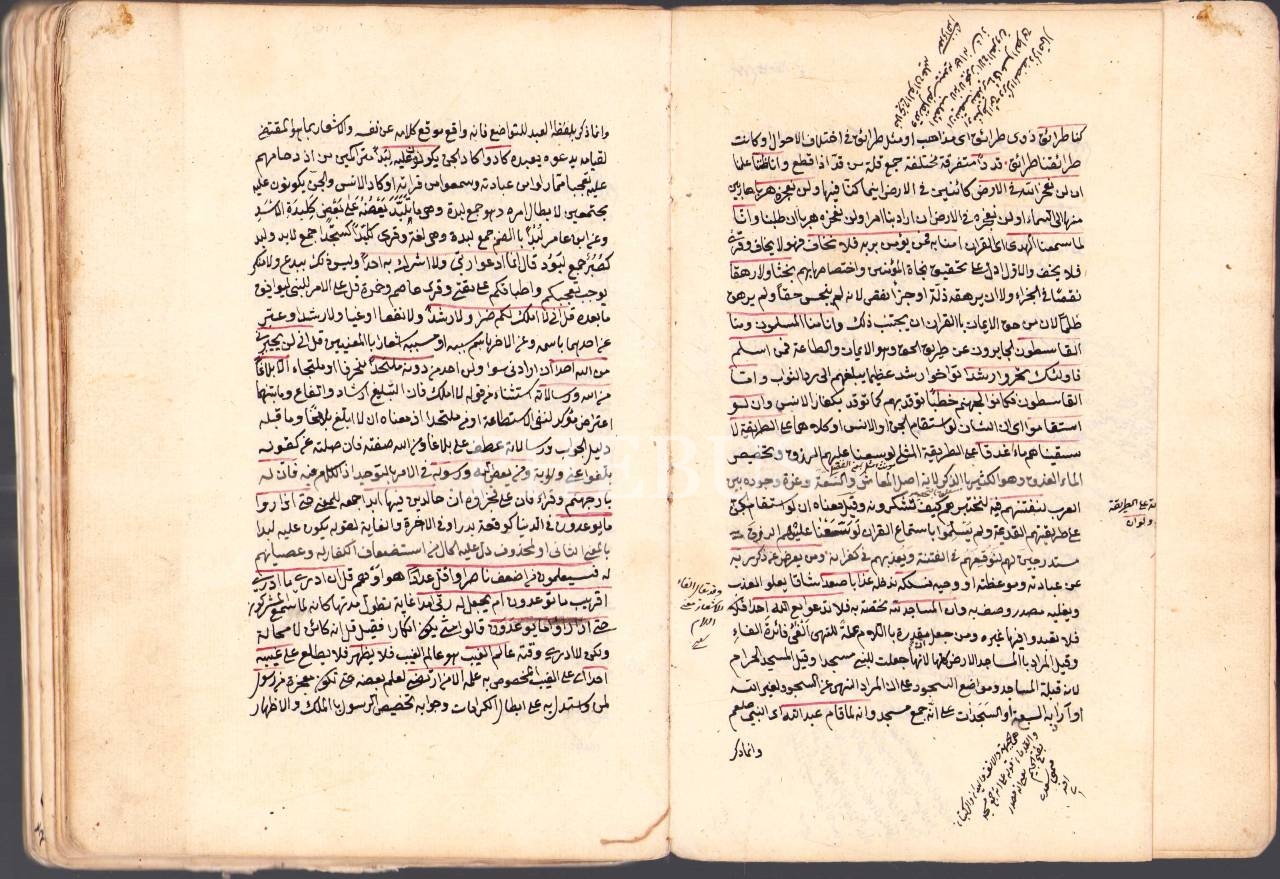 كنا طرائق ذوى طرائق اى مذاهب او مثل طرائق فى اختلاف الاحوال او كانت
طرائقنا طرائق قددا متفرقة مختلفة جمع قدة من قد اذا قطع وانا ظننا علمنا
ان لن نعجز الله فى الارض كائنين فى الارض اينما كنا فيها ولن نعجزه هربا هاربين
منها الى السماء او لن نعجزه فى الارض ان اراد بنا امرا ولن نعجزه هربا ان طلبنا وانا
لما سمعنا الهدى اى القران امنا به فمن يؤمن بربه فلا يخاف فهو لا يخاف وقرئ
فلا يخف والاول ادل على تحقيق نجاة المؤمنين واختصاصها بهم بخسا ولا رهقا
نقصا فى الجزاء ولا ان يرهقه ذلة او جزاء نقص لانه لم يبخس حقا ولم يرهق
ظلما لان من حق الايمان بالقران ان يجتنب ذلك وانا منا المسلمون ومنا
القاسطون الجايرون عن طريق الحق وهو الايمان والطاعة فمن اسلم
فاولئك تحروا رشدا توخوا رشدا عظيما يبلغهم الى دار الثواب واما
القاسطون فكانوا لجهنم حطبا توقد بهم كما توقد بكفار الانس وان لو
استقاموا اى ان الشان لو استقام الجن او الانس او كلاهما على الطريقة لا
سقيناهم ماء غدقا على الطريقة المثلى لوسعنا عليهم الرزق وتخصيص
الماء الغدق وهو الكثير بالذكر لانه اصل المعاش والسعة وعزة وجوده بين
العرب لنفتنهم فيه لنختبرهم كيف يشكرونه وقيل معناه ان لو استقام الجن
على طريقتهم القديمة ولم يسلموا باستماع القران لوسعنا عليهم الرزق
مستدرجين لهم لنوقعهم فى الفتنة ونعذبهم فى كفرانه ومن يعرض عن ذكر ربه
عن عبادته او موعظته او وحيه نسلكه ندخله عذابا صعدا شاقا يعلو المعذب
ويغلبه مصدر وصف به وان المساجد لله مختصة به فلا تدعوا مع الله احدا
فلا تعبدوا فيها غيره ومن جعل ان مقدرة باللام علة للنهى الغى فائدة الفاء
وقيل المراد بالمساجد الارض كلها لانها جعلت للنبى مسجدا وقيل المسجد الحرام
لانه قبلة المساجد ومواضع السجود على ان المراد النهى عن السجود لغير الله
او آرابه السبعة او السجدات على انه جمع مسجد وانه لما قام عبد الله اى النبى صلعم
وانما ذكر
وانما ذكر بلفظ العبد للتواضع فانه واقع موقع كلامه عن نفسه والاشعار بما هو المقتضى
لقيامه يدعوه يعبده كادوا كاد الجن يكونون عليه لبدا متراكمين من ازدحامهم
عليه تعجبا مما راوا من عبادته وسمعوا من قراءته او كاد الانس والجن يكونون عليه
مجتمعين لابطال امره وهو جمع لبدة وهى ما تلبد بعضه على بعض كلبدة الاسد
وعن ابن عامر لبدا بالضم جمع لبدة وهى لغة وقرئ لبدا كسجدا جمع لابد ولبد
كصبر جمع لبود قال انما ادعوا ربى ولا اشرك به احدا وليس ذلك ببدع ولا منكر
يوجب تعجبكم واطباقكم على مقتى وقرئ عاصم وحمزة قل على الامر للنبى ليوافق
ما بعده قل انى لا املك لكم ضرا ولا رشدا ولا نفعا او غيا ولا رشدا وعبر
عن احدهما باسمه وعن الاخر باسم سببه او مسببه اشعارا بالمعنيين قل انى لن يجيرنى
من الله احد ان ارادنى بسوء ولن اجد من دونه ملتحدا منحرفا او ملتجاء الا بلاغا
من الله ورسالاته استثناء من قوله لا املك فان التبليغ ارشاد وانفاع وما بينهما
اعتراض مؤكد لنفى الاستطاعة او من ملتحدا او معناه ان لا ابلغ بلاغا وما قبله
دليل الجواب ورسالاته عطف على بلاغا ومن الله صفته فان صلته عن كقوله
بلغوا عنى ولو اية ومن يعص الله ورسوله فى الامر بالتوحيد اذ الكلام فيه فان له
نار جهنم وقرئ فان على فجزاؤه ان خالدين فيها ابدا جمعه للمعنى حتى اذا راوا
ما يوعدون فى الدنيا كوقعة بدر او فى الاخرة والغاية لقوله يكون عليه لبدا
بالمعنى الثانى او لمحذوف دل عليه الحال من استضعاف الكفار له وعصيانهم
له فسيعلمون من اضعف ناصرا واقل عددا هو او هم قل ان ادرى ما ادرى
اقريب ما توعدون ام يجعل له ربى امدا غاية تطول مدتها كانه لما سمع المشركون
حتى اذا راوا ما يوعدون قالوا متى يكون انكارا فقيل قل انه كائن لا محالة
ولكن لا ادرى وقته عالم الغيب هو عالم الغيب فلا يظهر فلا يطلع على غيبه
احدا اى على الغيب المخصوص به علمه الا من ارتضى لعلم بعضه حتى يكون معجزة من رسول
لمن واستدل به على ابطال الكرامات وجوابه تخصيص الرسول بالملك والاظهار